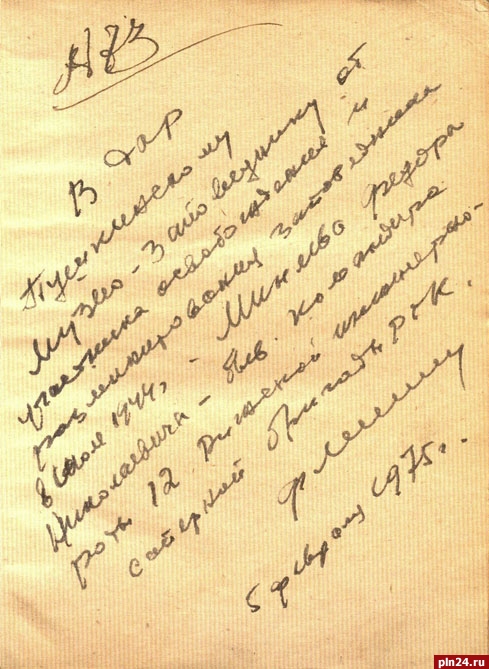 В дар
Пушкинскому
Музею-Заповеднику от
участника освобождения и
разминирования заповедника
в июле 1944г. - Миняева Федора
Николаевича - быв. командира
роты 12 Рижской инженерно-
саперной бригады РГК.
5 февраля 1975г.
pln24.ru